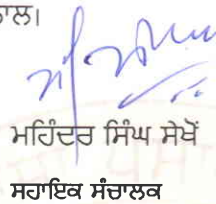 ਨਾਲ।
ਮਹਿੰਦਰ ਸਿੰਘ ਸੇਖੋਂ
ਸਹਾਇਕ ਸੰਚਾਲਕ